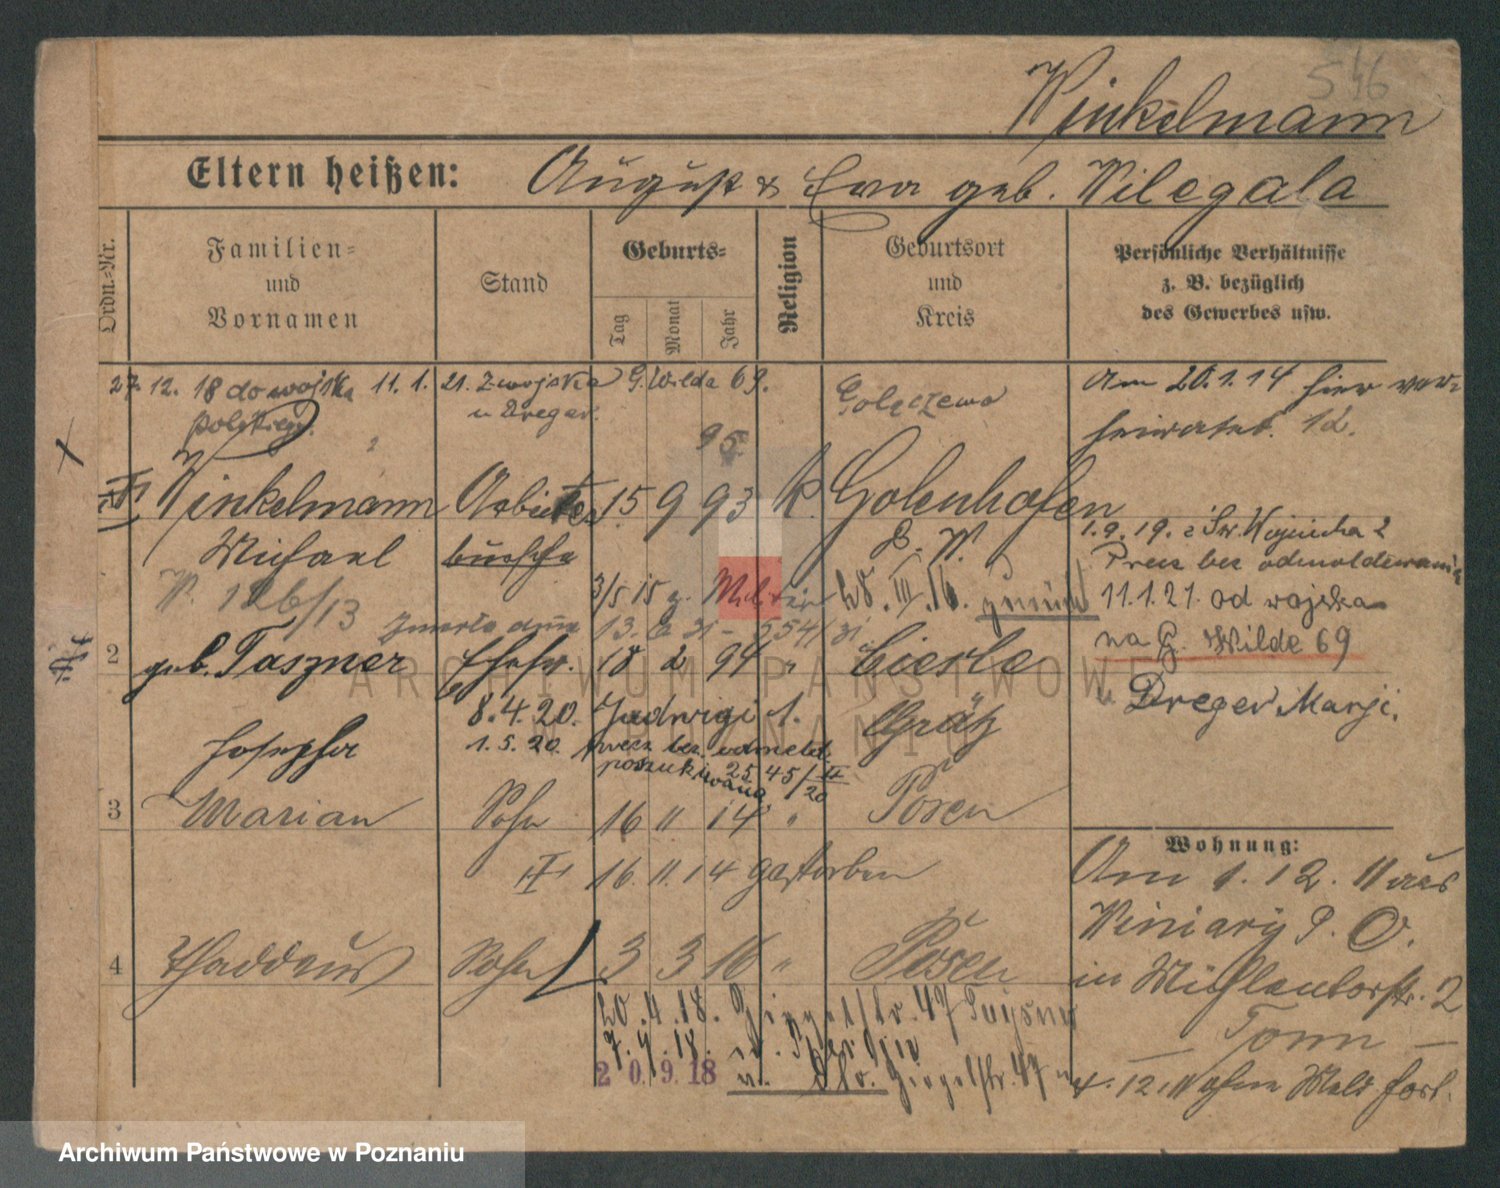 546
Winkelmann
Eltern heißen: August & Eva geb. Wilegala
Ordn.-Nr.
Familien-
und
Vornamen
Stand
Geburts-
Tag
Monat
Jahr
Religion
Geburtsort
und
Kreis
Persönliche Verhältnisse
z. B. bezüglich
des Gewerbes usw.
27. 12. 18 do wojska 11. 1. 21. z wojska G. Wilda 69.
polskiego. u Dreger.
Golęczewo
Am 20.1.14 hier ver-
heiratet. 12.
95.
Winkelmann Arbeiter 15 9 93 k. Golenhofen
Michael bursche P. W.
1.9.19. Św. Wojciecha 2
Precz bez odmeldowania
W. 126/13 3/5 15 z. Militär 28. III. 16. zurück
11.1.21. od wojska
13. 6 31 - 554/31
na G. Wilde 69
2 geb. Taszner Ehefr. 18 2 94 " Cieśle
u Dreger Marji.
8.4.20. Jadwigi 1. Grätz
Josepha 1.5.20. precz bez odmeld.
poszukiwana 2545/II 20
3 Marian Sohn 16 11 14 " Posen
16. 11. 14 gestorben
Wohnung:
Am 1. 12. 11 aus
Winiary P. O.
in Mühlentorstr. 2
— Tonn —
4. 12. 11 ohne Meld. fort.
4 Thaddäus Sohn 3 3 16 " Posen
20. 4. 18. Ziegelstr. 47
7. 9. 18.
2 0. 9. 18 u. Ziegelstr. 47
ARCHIWUM PAŃSTWOWE
W POZNANIU
Archiwum Państwowe w Poznaniu